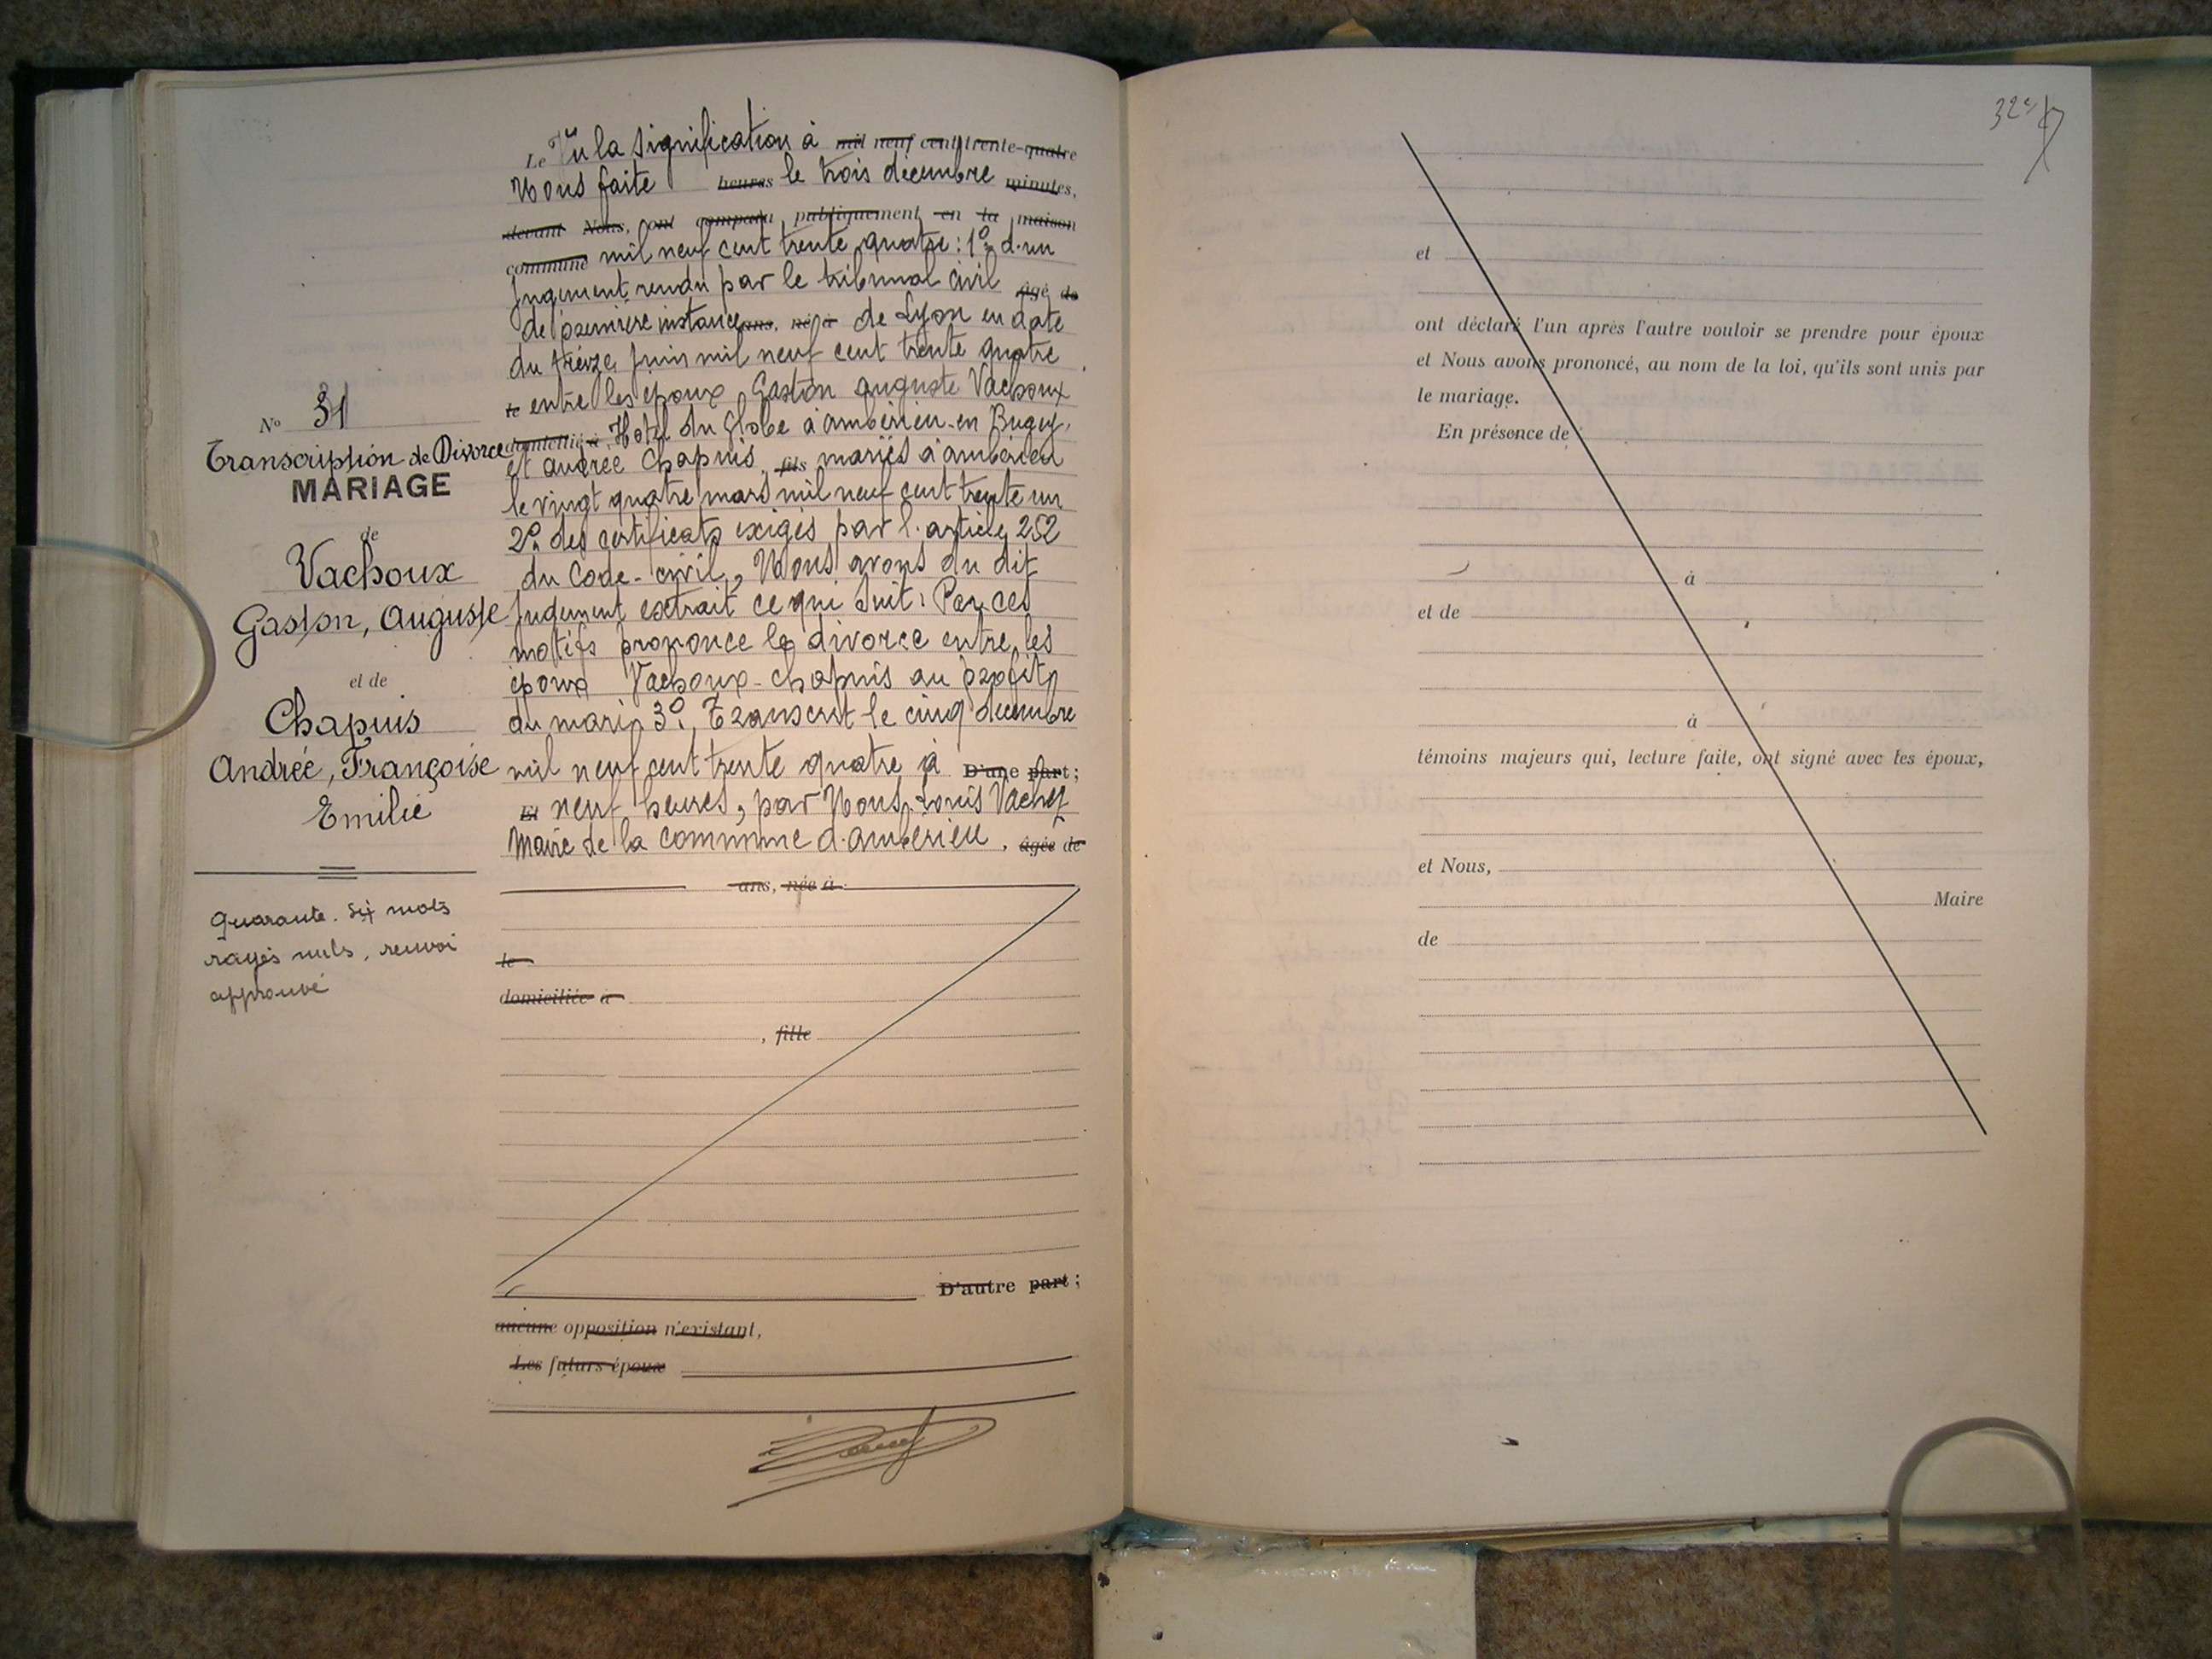 N° 31
Transcription de Divorce
MARIAGE
de
Vachoux
Gaston, Auguste
et de
Chapuis
Andrée, Françoise
Emilie
Quarante. six mots
rayés nuls, renvoi
approuvé
Le Vu la signification à mil neuf cent trente-quatre
Nous faite heures le trois décembre minutes,
devant Nous, ont comparu publiquement en la maison
commune mil neuf cent trente quatre : 1º d'un
Jugement rendu par le tribunal civil âgé de
de première instance ans, né à de Lyon en date
du treize juin mil neuf cent trente quatre
le entre les époux Gaston Auguste Vachoux
domicilié à Hotel du Globe à Ambérieu-en Bugey,
et Andrée Chapuis fils mariés à Ambérieu
le vingt quatre mars mil neuf cent trente un
2º des certificats exigés par l'article 252
du Code-civil, Nous avons du dit
Judement extrait ce qui suit : Par ces
motifs prononce le divorce entre les
époux Vachoux-Chapuis au profit
du mari 3º Transcrit le cinq décembre
mil neuf cent trente quatre à D'une part ;
Et neuf heures, par Nous, Louis Vachet
Maire de la commune d'Ambérieu, âgée de
ans, née à
le
domiciliée à
, fille
D'autre part ;
aucune opposition n'existant,
Les futurs époux
et
ont déclaré l'un après l'autre vouloir se prendre pour époux
et Nous avons prononcé, au nom de la loi, qu'ils sont unis par
le mariage.
En présence de
à
et de
à
témoins majeurs qui, lecture faite, ont signé avec les époux,
et Nous,
Maire
de